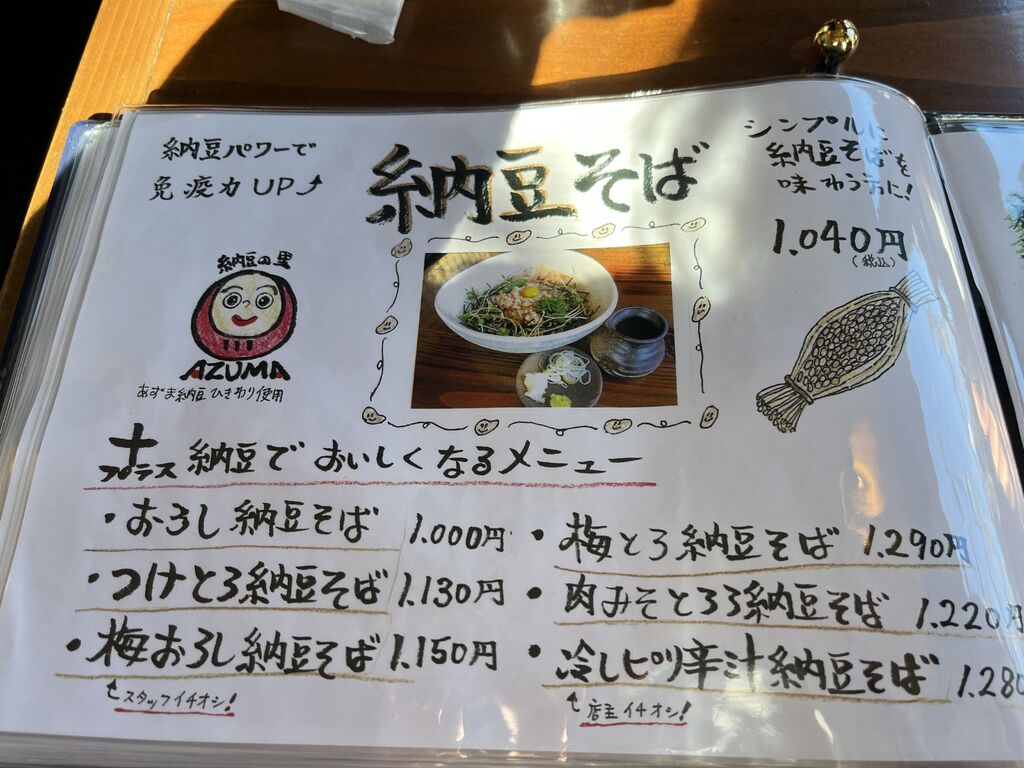 納豆パワーで
免疫力UP⤴
納豆そば
シンプルに
納豆そばを
味わう方に!
1.040円
(税込)
納豆の里
AZUMA
あずま納豆ひきわり使用
+プラス 納豆でおいしくなるメニュー
・おろし納豆そば 1.000円
・つけとろ納豆そば 1.130円
・梅おろし納豆そば 1.150円
スタッフイチオシ!
・梅とろ納豆そば 1.290円
・肉みそとろろ納豆そば 1.220円
・冷しピリ辛汁納豆そば 1.280
店主イチオシ!